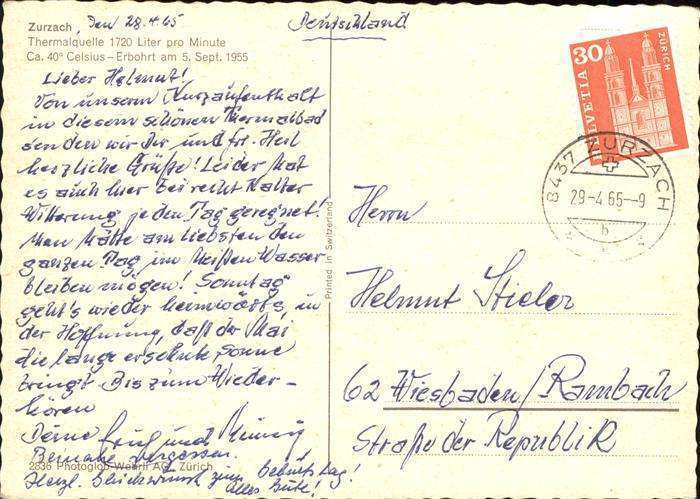 Zurzach, den 28.4.65
Deutschland
Thermalquelle 1720 Liter pro Minute
Ca. 40° Celsius – Erbohrt am 5. Sept. 1955
Lieber Helmut!
Von unserm Kurzaufenthalt
in diesem schönen Thermalbad
senden wir Dir und Frl. Heil
herzliche Grüße! Leider hat
es auch hier bei recht kalter
Witterung jeden Tag geregnet!
Man hätte am liebsten den
ganzen Tag im heißen Wasser
bleiben mögen! Sonntag
geht's wieder heimwärts, in
der Hoffnung, daß der Mai
die lange ersehnte Sonne
bringt. Bis zum Wieder-
hören
Deine und
Beinahe vergessen.
2836 Photoglob-Wehrli AG, Zürich
Herzl. Glückwunsch zum Geburtstag!
Alles Gute!
Printed in Switzerland
30
HELVETIA
ZÜRICH
8437 ZURZACH
29-4.65-9
b
Herrn
Helmut Stieler
62 Wiesbaden/Rambach
Straße der Republik